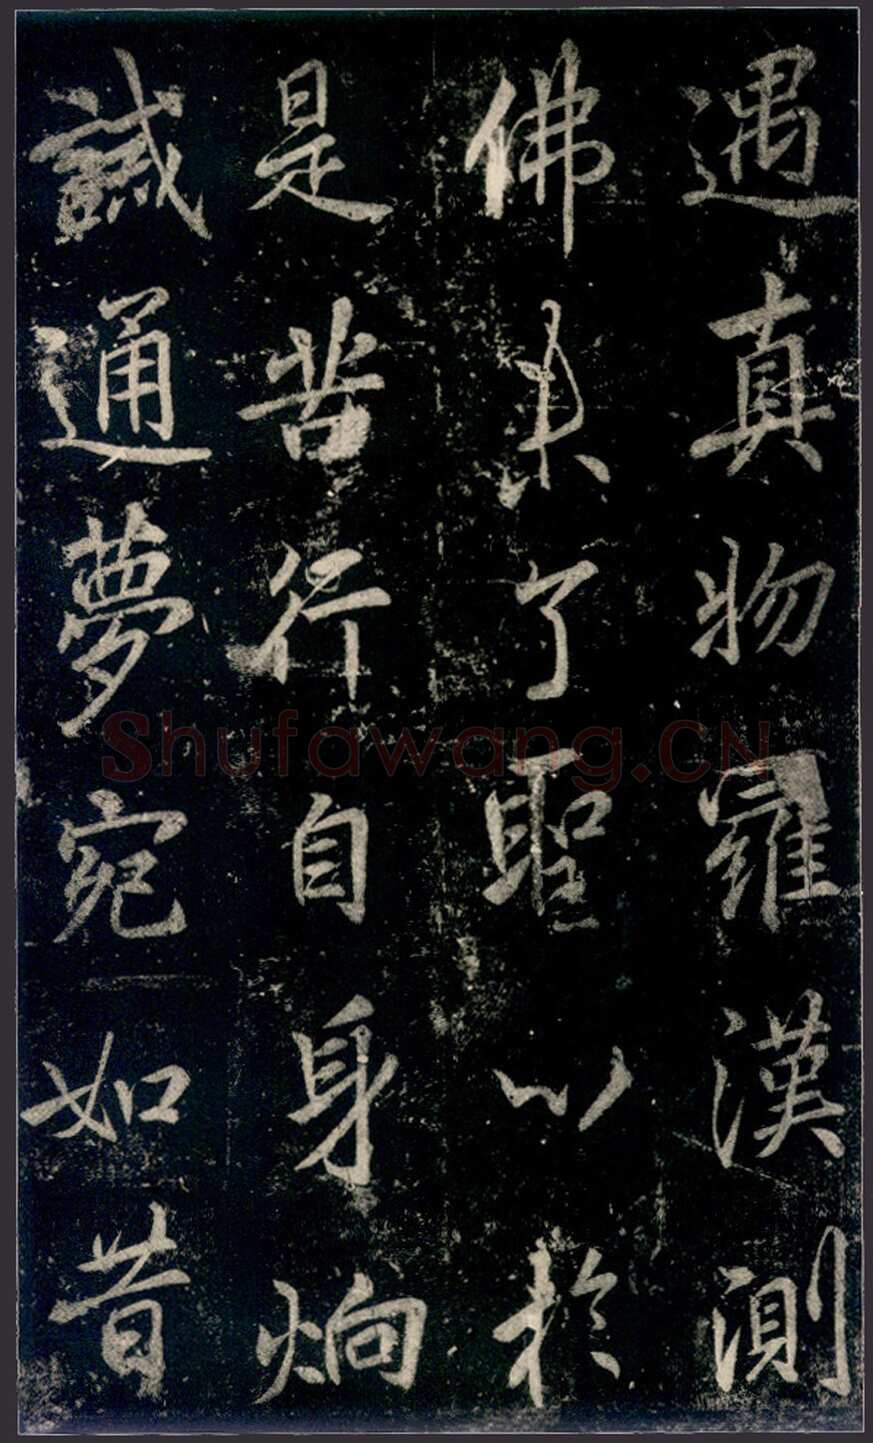 遇真物羅漢測
佛了聖以於
是行自身炯
通夢宛如昔
Shufawang.CN